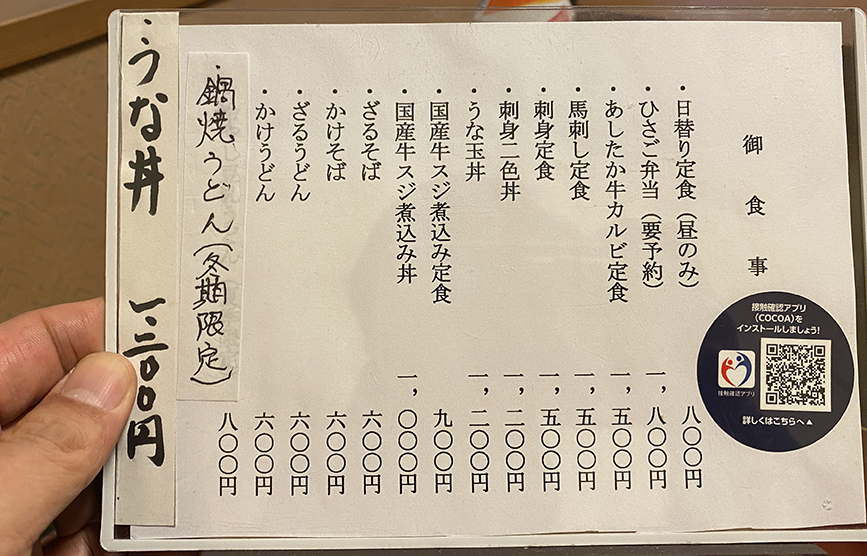 御食事
・日替り定食（昼のみ） 八〇〇円
・ひさご弁当（要予約） 一，八〇〇円
・あしたか牛カルビ定食 一，五〇〇円
・馬刺し定食 一，五〇〇円
・刺身定食 一，五〇〇円
・刺身二色丼 一，二〇〇円
・うな玉丼 一，二〇〇円
・国産牛スジ煮込み定食 九〇〇円
・国産牛スジ煮込み丼 一，〇〇〇円
・ざるそば 六〇〇円
・かけそば 六〇〇円
・ざるうどん 六〇〇円
・かけうどん 六〇〇円
・鍋焼うどん（冬期限定） 八〇〇円
・うな丼 一、三〇〇円
接触確認アプリ
（COCOA）を
インストールしましょう！
接触確認アプリ
詳しくはこちらへ▲